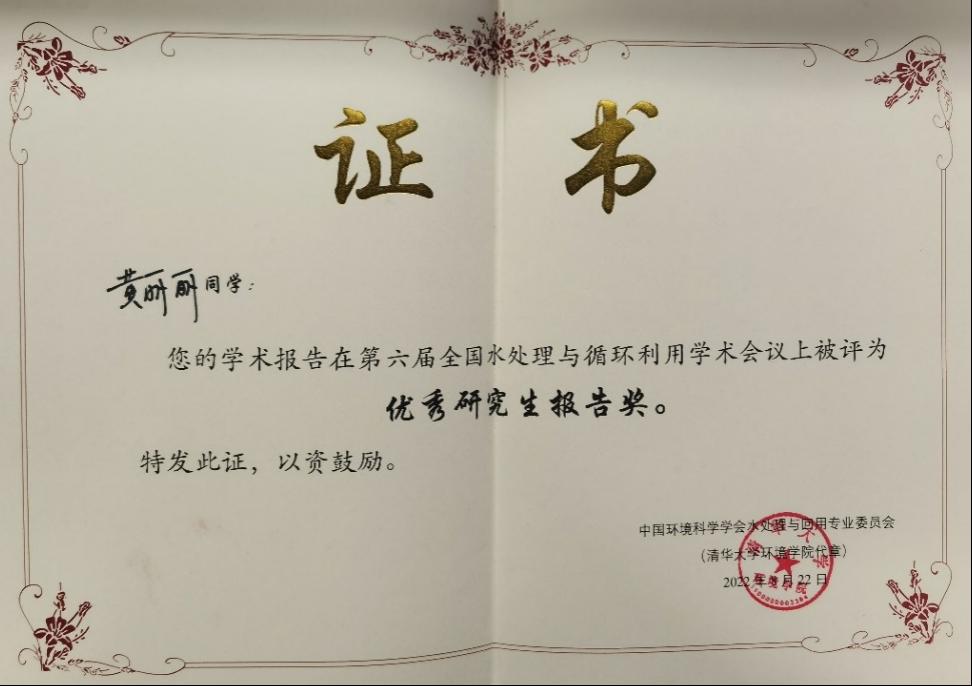 证书
黄丽丽同学：
您的学术报告在第六届全国水处理与循环利用学术会议上被评为
优秀研究生报告奖。
特发此证，以资鼓励。
中国环境科学学会水处理与回用专业委员会
（清华大学环境学院代章）
2022年 月22日
清华大学
环境学院